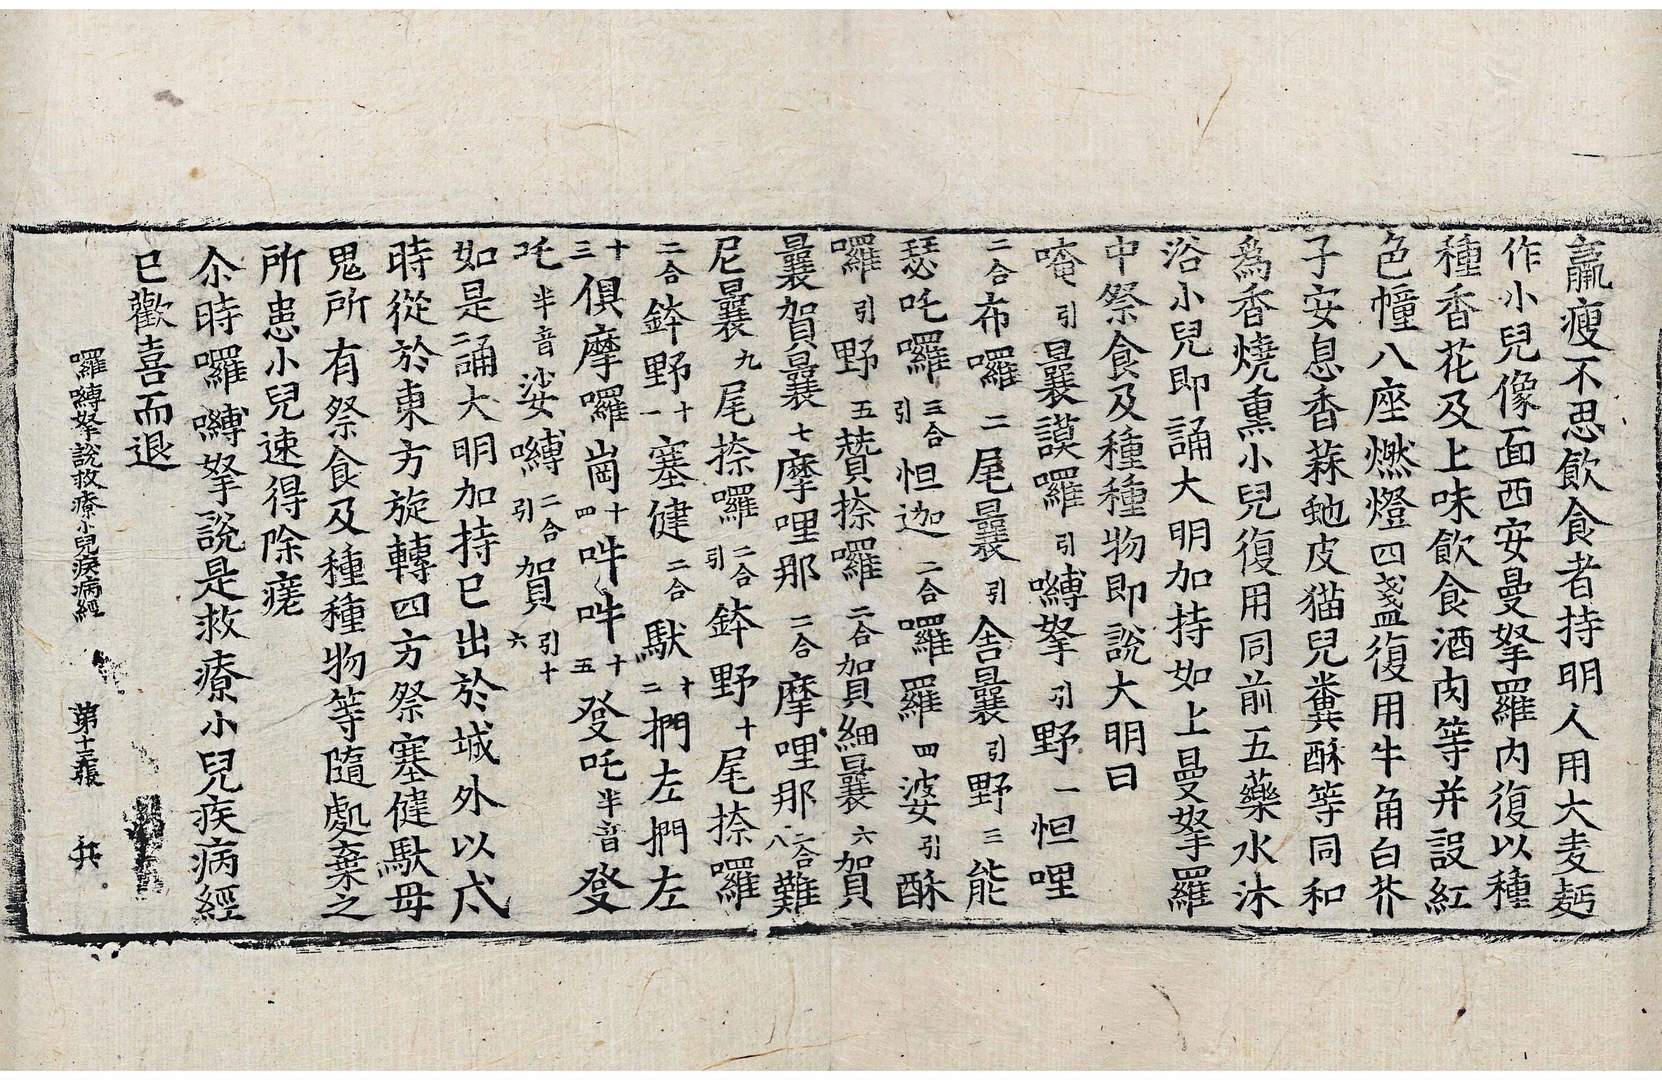 羸瘦不思飲食者持明人用大麦麺
作小兒像面西安曼拏羅内復以種
種香花及上味飲食酒肉等并設紅
色幢八座燃燈四盞復用牛角白芥
子安息香蒜虵皮猫兒糞酥等同和
為香燒熏小兒復用同前五藥水沐
浴小兒即誦大明加持如上曼拏羅
中祭食及種種物即說大明曰
唵引曩謨囉引嚩拏引野一怛哩
二合布囉二尾曩引舍曩引野三能
瑟吒囉三合引怛迦二合囉羅四婆引酥
囉引野五贊捺囉二合賀細曩六賀
曩賀曩七摩哩那二合摩哩那二合八難
尼曩九尾捺囉二合引鉢野十尾捺囉
二合鉢野十一塞健二合馱十二捫左捫左
十三俱摩囉崗十四吽吽十五發吒半音發
吒半音娑嚩二合引賀引十六
如是誦大明加持已出於城外以戍
時從於東方旋轉四方祭塞健馱母
鬼所有祭食及種種物等隨處棄之
所患小兒速得除瘥
尒時囉嚩拏說是救療小兒疾病經
已歡喜而退
囉嚩拏說救療小兒疾病經 第十二張 兵